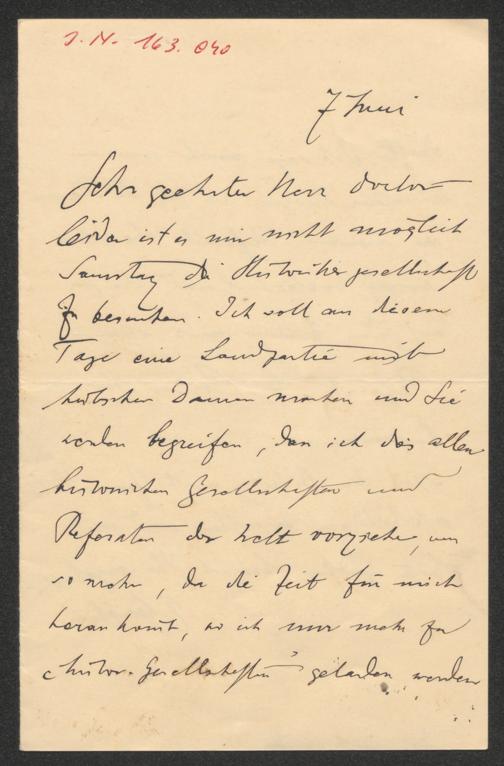 J. N. 163.040
7 Juni
Sehr geehrter Herr Doctor
leider ist es mir nicht möglich
Samstag die Historikergesellschaft
zu besuchen. Ich soll an diesem
Tage eine Landpartie mit
hübschen Damen machen und Sie
werden begreifen, dass ich dies allen
historischen Gesellschaften und
Referaten der Welt vorziehe, um
so mehr, da die Zeit für mich
heran kommt, wo ich nur mehr zu
"histor. Gesellschaften" geladen werden